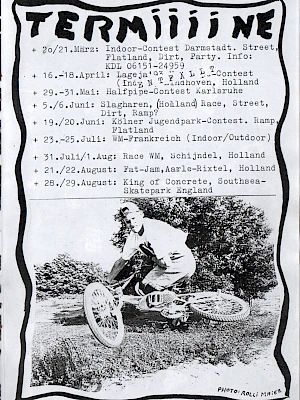 TERMiiiiNE
+ 20/21.März: Indoor-Contest Darmstadt. Street,
Flatland, Dirt, Party. Info:
KDL 06151-24959
+ 16.-18.April: Contest
Eindhoven, Holland
+ 29.-31.Mai: Halfpipe-Contest Karlsruhe
+ 5./6.Juni: Slagharen, (Holland) Race, Street,
Dirt, Ramp?
+ 19./20.Juni: Kölner Jugendpark-Contest. Ramp,
Flatland
+ 23.-25.Juli: WM-Frankreich (Indoor/Outdoor)
+ 31.Juli/1.Aug: Race WM, Schijndel, Holland
+ 21./22.August: Fat-Jam, Aarle-Rixtel, Holland
+ 28./29.August: King of Concrete, Southsea-
Skatepark England
PHOTO: ROLLI MAIER